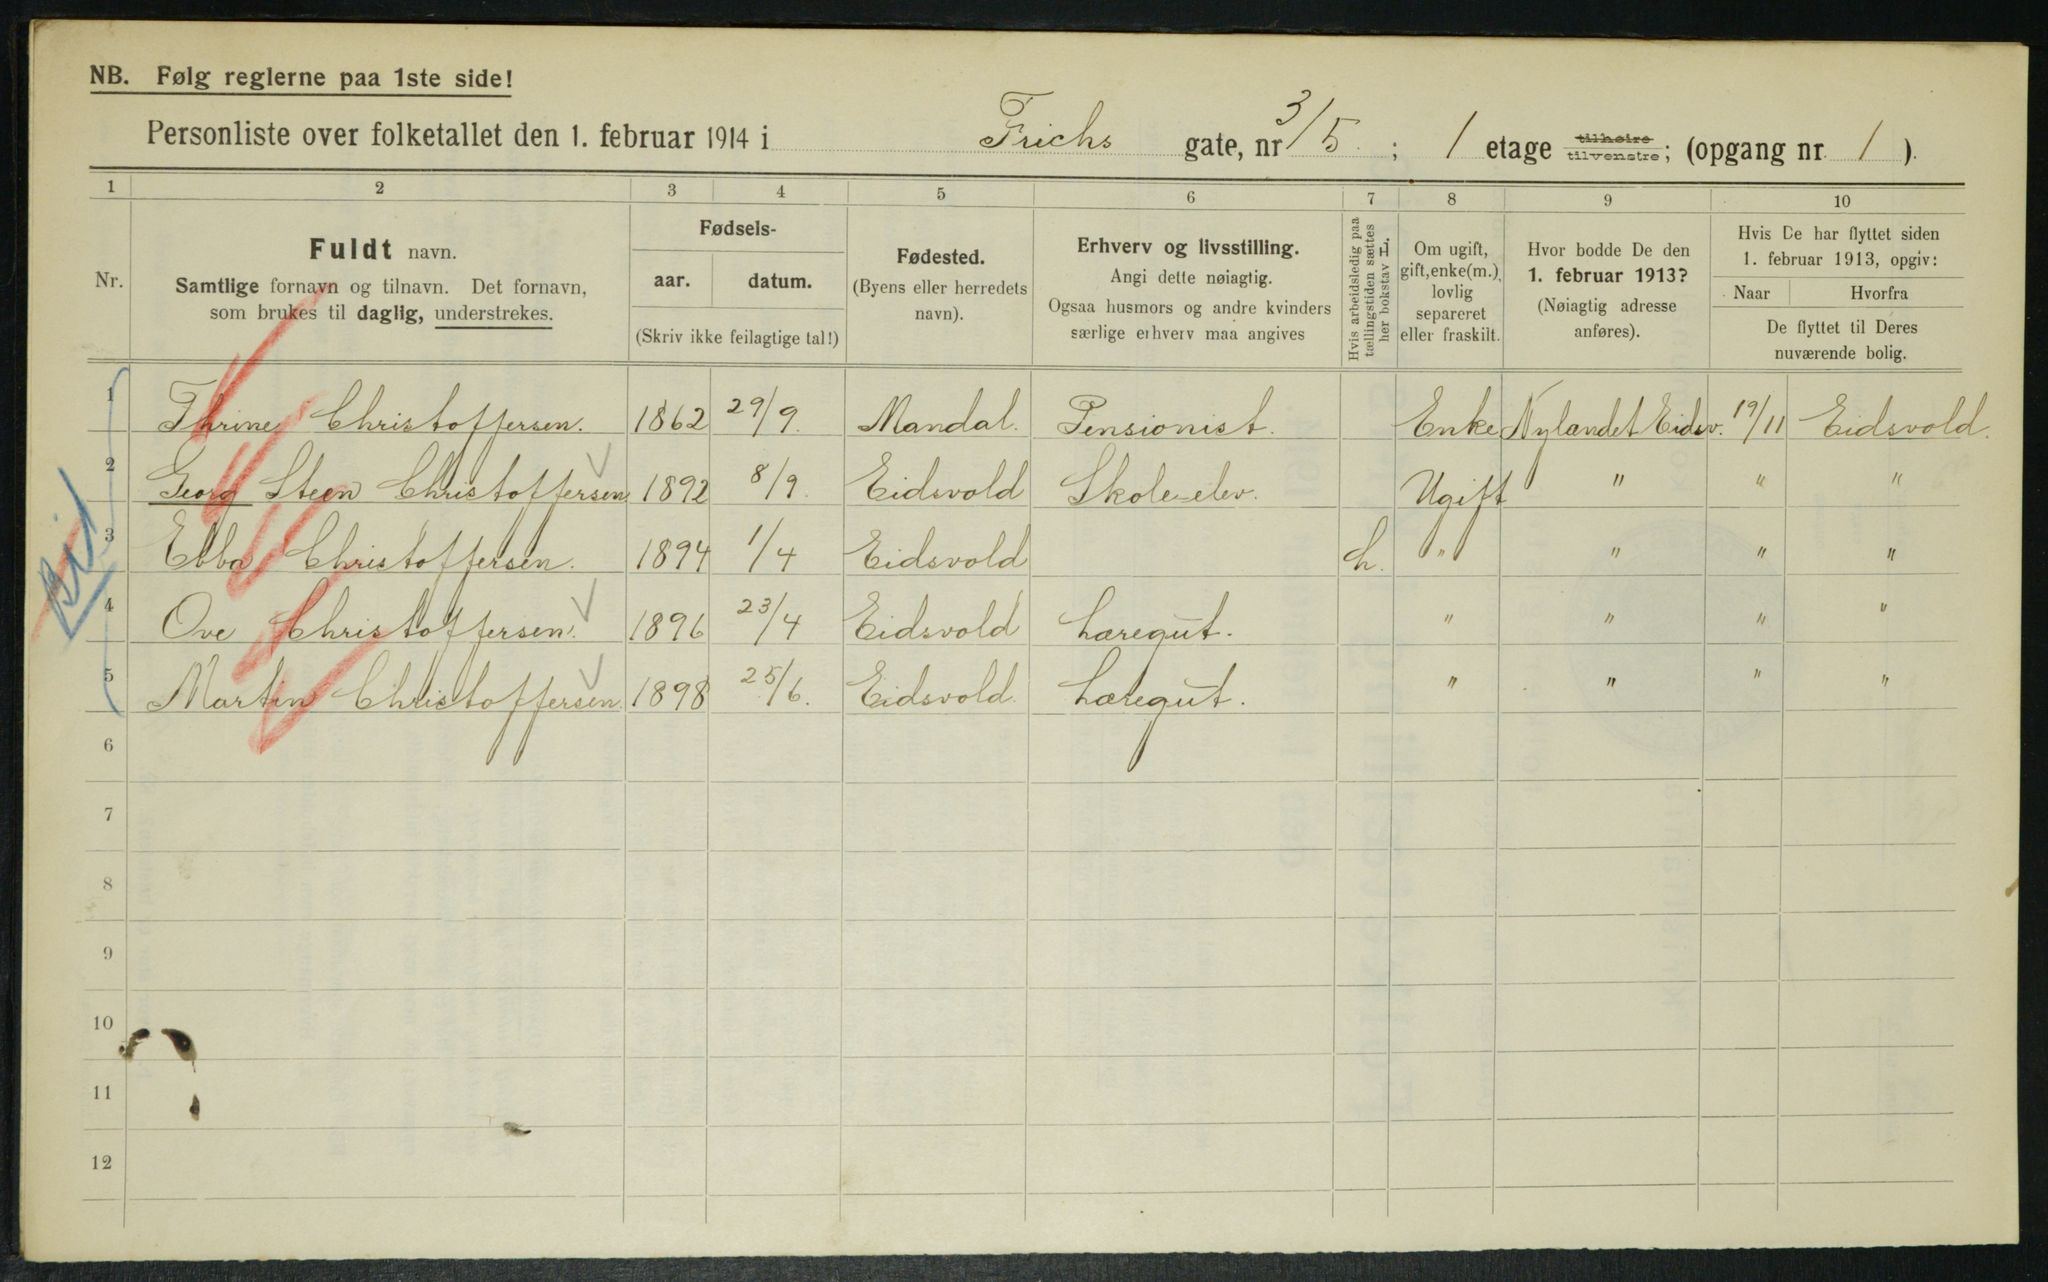 NB. Følg reglerne paa 1ste side!
Personliste over folketallet den 1. februar 1914 i Frichs gate, nr 3/5 ; 1 etage tilhøire tilvenstre; (opgang nr. 1 ).
1 2 3 4 5 6 7 8 9 10
Nr.
Fuldt navn.
Samtlige fornavn og tilnavn. Det fornavn,
som brukes til daglig, understrekes.
Fødsels-
aar. datum.
(Skriv ikke feilagtige tal!)
Fødested.
(Byens eller herredets
navn).
Erhverv og livsstilling.
Angi dette nøiagtig.
Ogsaa husmors og andre kvinders
særlige erhverv maa angives
Hvis arbeidsledig paa
tællingstiden sættes
her bokstav L.
Om ugift,
gift, enke(m.),
lovlig
separeret
eller fraskilt.
Hvor bodde De den
1. februar 1913?
(Nøiagtig adresse
anføres).
Hvis De har flyttet siden
1. februar 1913, opgiv:
Naar Hvorfra
De flyttet til Deres
nuværende bolig.
1 Thrine Christoffersen. 1862 29/9. Mandal. Pensionist. Enke Nylandet Eidsv. 19/11 Eidsvold.
2 Georg Steen Christoffersen 1892 8/9. Eidsvold Skole-elev. Ugift " " "
3 Ebba Christoffersen. 1894 1/4 Eidsvold h. " " " "
4 Ove Christoffersen. 1896 23/4 Eidsvold Læregut. " " " "
5 Martin Christoffersen 1898 25/6. Eidsvold. Læregut. " " " "
6
7
8
9
10
11
12